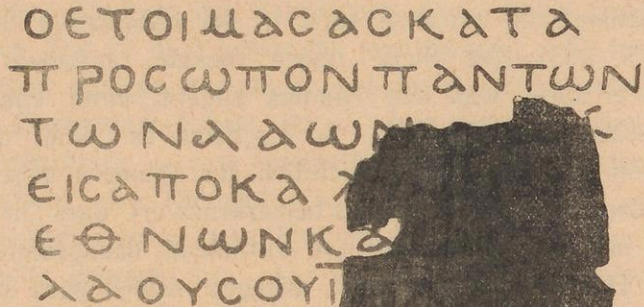 ΟΕΤΟΙΜΑϹΑϹΚΑΤΑ
ΠΡΟϹΩΠΟΝΠΑΝΤΩΝ
ΤΩΝΛΑΩΝ
ΕΙϹΑΠΟΚΑΛ
ΕΘΝΩΝΚΑ
ΛΑΟΥϹΟΥΙ